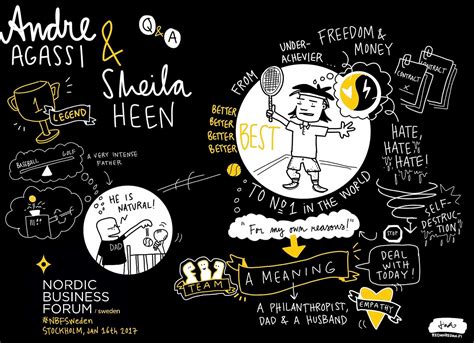 Andre
AGASSI
&
Sheila
HEEN
Q & A
1
LEGEND
BASEBALL
GOLF
A VERY INTENSE
FATHER
HE IS
NATURAL!
DAD
NORDIC
BUSINESS
FORUM / sweden
#NBFSweden
STOCKHOLM, JAN 16th 2017
FROM
UNDER-
ACHIEVER
BETTER
BETTER
BETTER
BETTER
BEST
TO No1 IN THE WORLD
FREEDOM &
MONEY
CONTRACT
CONTRACT
HATE,
HATE,
HATE!
SELF-
DESTRUC-
TION
STOP
DEAL
WITH
TODAY!
"For my own reasons!"
TEAM
A MEANING
A PHILANTHROPIST,
DAD & A HUSBAND
EMPATHY